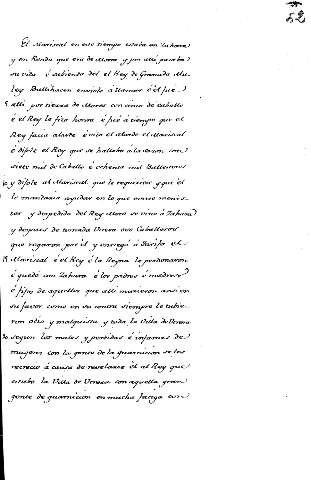 52
El Mariscal en este tiempo estaba en Zahara
y en Ronda que era de Moros y por alli pasaba
su vida é sabiendo del el Rey de Granada Mu
ley Bulihacen enviolo á llamar é él fué
5 alli por tierra de Moros con cinco de caballo
é el Rey le fizo honra é fué á tiempo que el
Rey facia alarde é vió el alarde el Mariscal
é dijole el Rey que se hallaba á la sazon con
siete mil de Caballo é ochenta mil Ballesteros
10 y dijole al Mariscal que le requiriese y que él
le mandaria ayudar en lo que oviese menes-
ter y despedido del Rey Moro se vino á Zahara
y despues de tomada Utrera sus Caballeros
que rogaron por él y entregó á Tarifa el
15 Mariscal é el Rey é la Reyna le perdonaron
é quedó con Zahara é los padres é madres
é fijos de aquellos que alli murieron ansi en
su favor como en su contra siempre le tubie-
ron odio y malquista y toda la Villa de Utrera
20 segun los males y perdidas é infamas de
mugeres con la gente de la guarnicion se les
recreció á causa de revelarse él al Rey que
estaba la Villa de Utrera con aquella gran
gente de guarnicion en mucha fatiga con